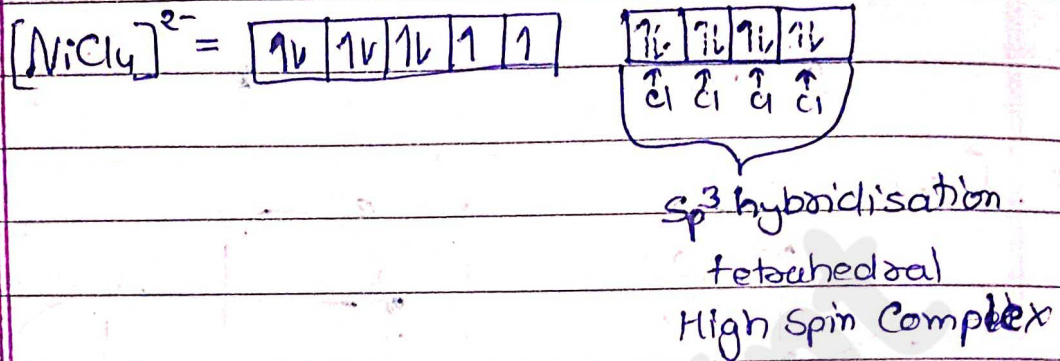 [NiCl4]2- = ↿⇂ ↿⇂ ↿⇂ ↿ ↿ ↿⇂ ↿⇂ ↿⇂ ↿⇂
↑ ↑ ↑ ↑
Cl Cl Cl Cl
Sp3 hybridisation.
tetrahedral
High Spin Complex